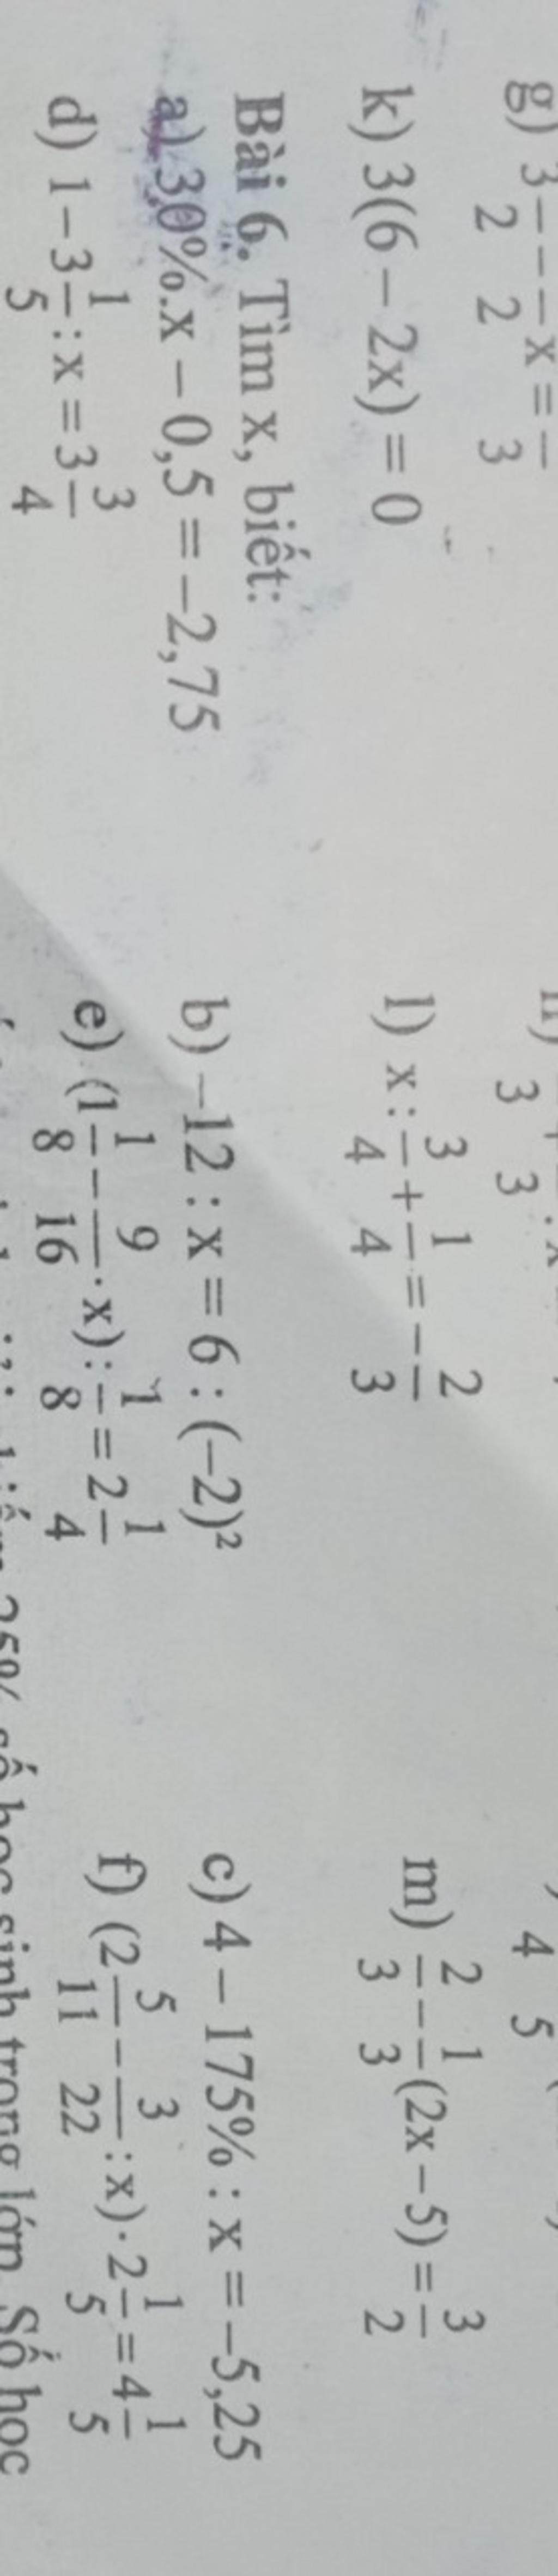 g) 3/2 - 1/2 x = /3
3 3
4 5
k) 3(6 – 2x) = 0 l) x : 3/4 + 1/4 = -2/3 m) 2/3 - 1/3 (2x – 5) = 3/2
Bài 6. Tìm x, biết:
a) 30%.x – 0,5 = –2,75 b) –12 : x = 6 : (–2)² c) 4 – 175% : x = –5,25
d) 1 – 3 1/5 : x = 3 3/4 e) (1 1/8 - 9/16 . x) : 1/8 = 2 1/4 f) (2 5/11 - 3/22 : x) . 2 1/5 = 4 1/5
25% số học sinh trong lớp. Số học